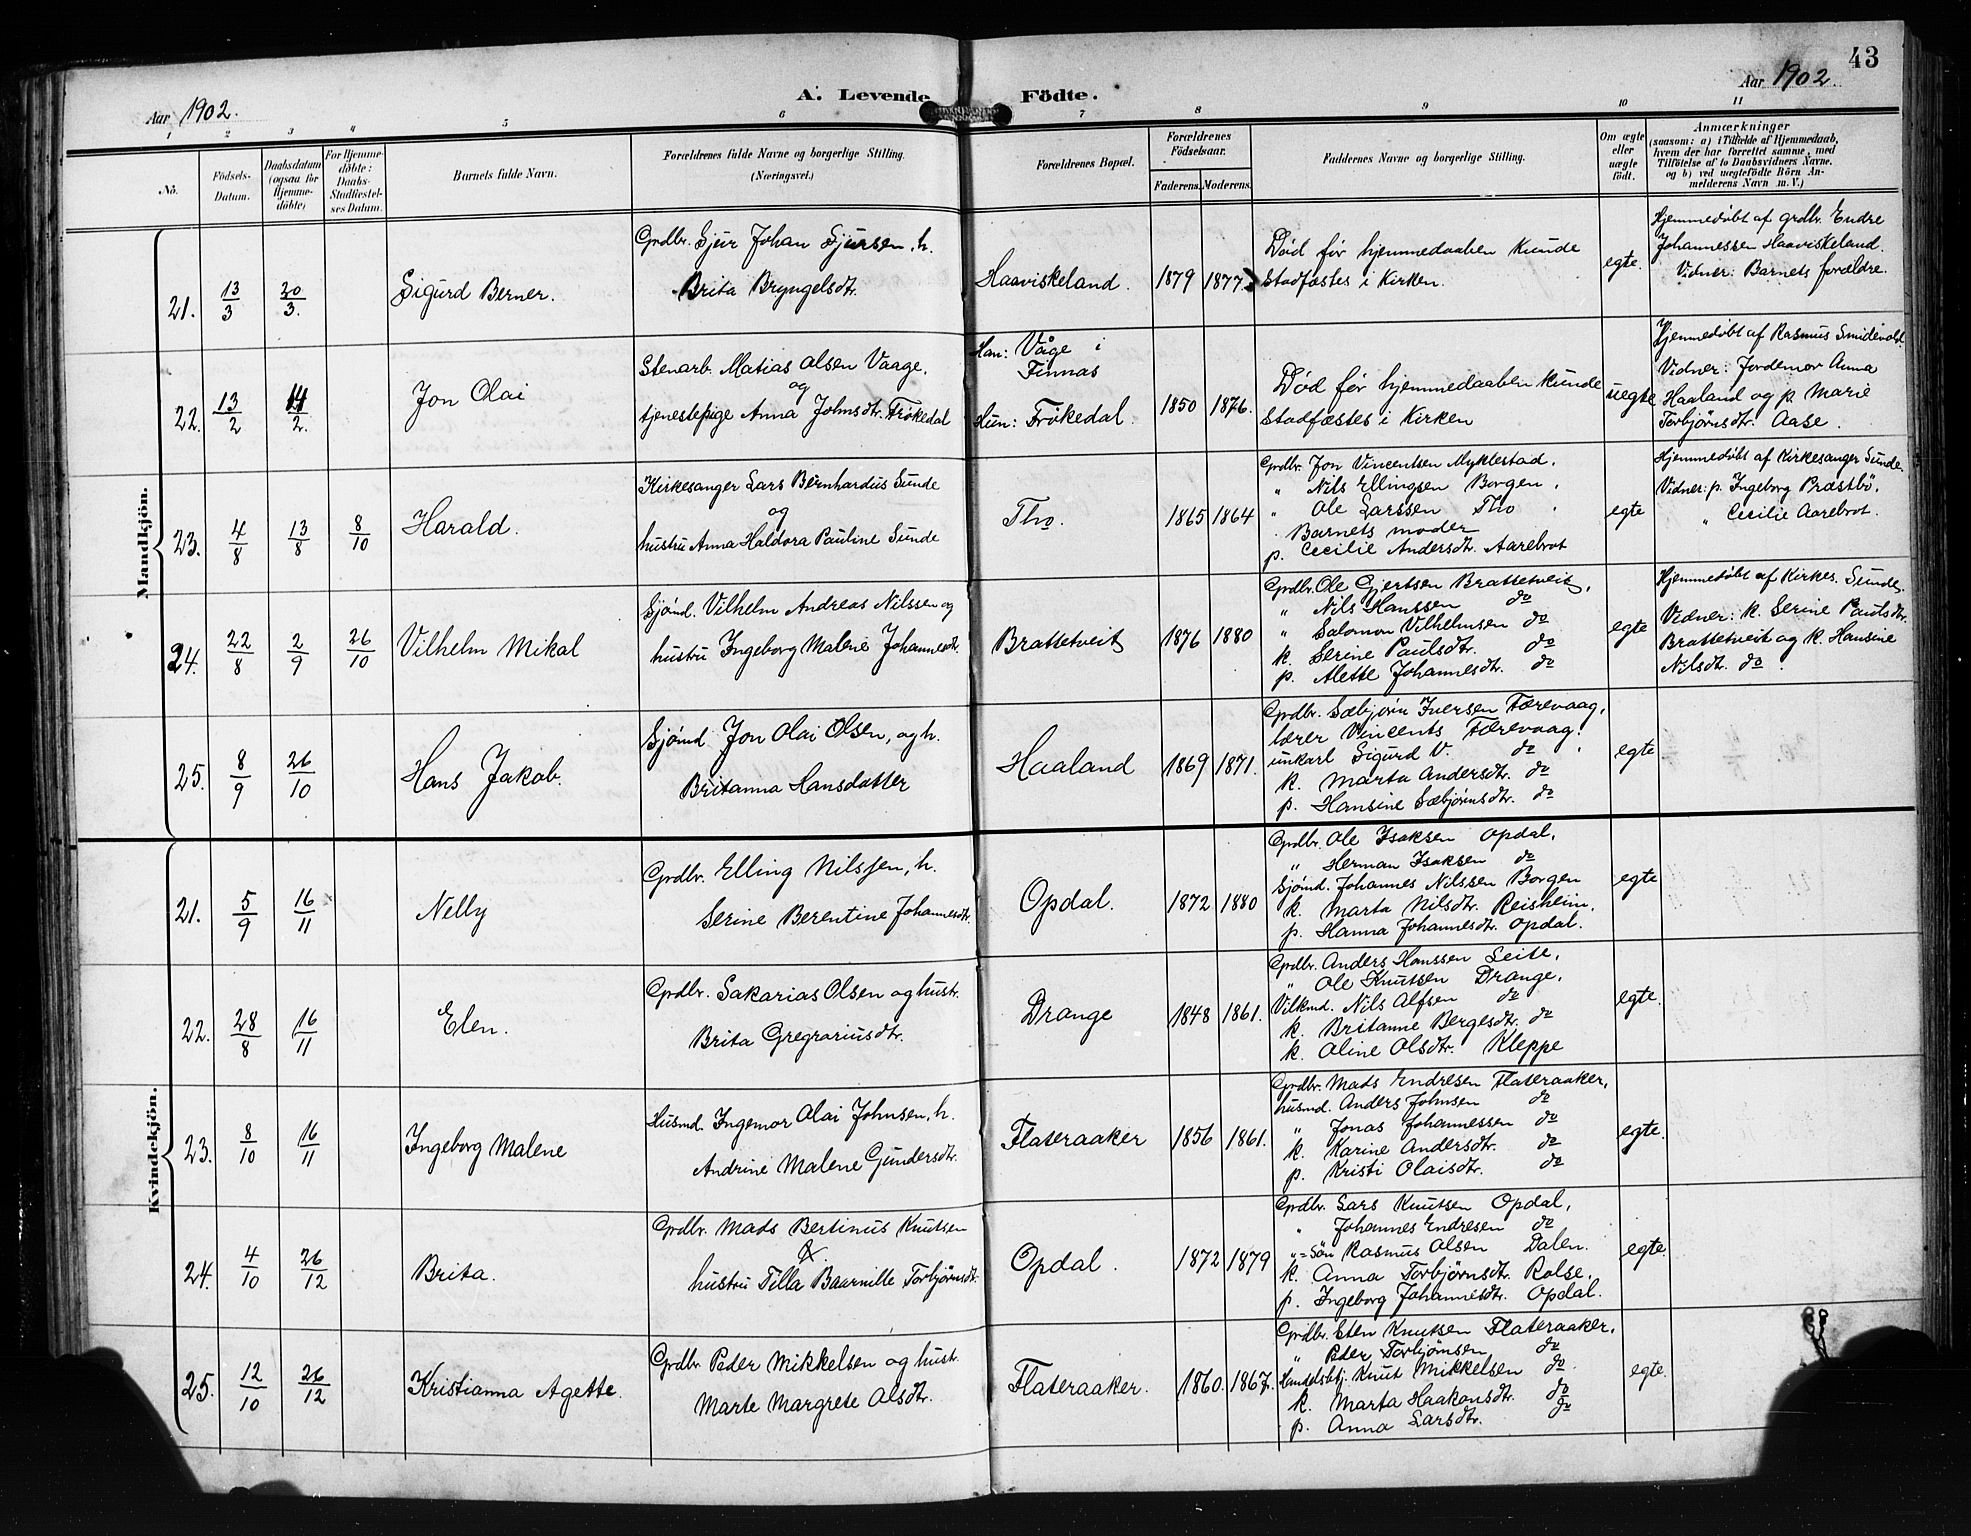 43
Aar 1902.
A. Levende Födte.
Aar 1902.
1 2 3 4 5 6 7 8 9 10 11
No.
Födsels-Datum.
Daabsdatum (ogsaa for Hjemme-döbte)
For Hjemme-döbte: Daabs-Stadfæstel-ses Datum.
Barnets fulde Navn.
Forældrenes fulde Navne og borgerlige Stilling.
(Næringsvei.)
Forældrenes Bopæl.
Forældrenes Födselsaar.
Faderens. Moderens.
Faddernes Navne og borgerlige Stilling.
Om ægte eller uægte födt.
Anmærkninger
(saasom: a) i Tilfælde af Hjemmedaab,
hvem der har forrettet samme, med
Tilföielse af to Daabsvidners Navne.
og b) ved uægtefödte Börn An-
melderens Navn m. V.)
Mandkjön.
21. 13/3 20/3. Sigurd Berner.
Grdbr. Sjur Johan Sjursen, h.
Brita Bryngelsdtr.
Haaviskeland. 1879 1877.
Död før hjemmedaaben kunde
stadfæstes i Kirken.
egte.
Hjemmedøbt af grdbr. Endre
Johannessen Haaviskeland.
Vidner: Barnets forældre.
22. 13/2 14/2. Jon Olai
Stenarb. Matias Olsen Vaage.
og
tjenestepige Anna Johnsdtr. Frøkedal
Han: Våge i
Finnas
Hun: Frøkedal. 1850 1876.
Død før hjemmedaaben kunde
stadfæstes i Kirken
uegte
Hjemmedøbt af Rasmus Smidevolt.
Vidner: Jordemor Anna
Haaland og p. Marie
Torbjørnsdtr. Aase.
23. 4/8 13/8 8/10 Harald.
Kirkesanger Lars Bernhardus Sunde
og
hustru Anna Haldora Pauline Sunde
Tho. 1865 1864
Grdbr. Jon Vincentsen Myklestad.
" Nils Ellingsen Borgen.
" Ole Larssen Tho.
Barnets moder
p. Cecilie Andersdtr. Aarebrot
egte
Hjemmedøbt af Kirkesanger Sunde.
Vidner: p. Ingeborg Præstbö.
" Cecilie Aarebrot.
24. 22/8 2/9 26/10 Vilhelm Mikal
Sjømd. Vilhelm Andreas Nilssen og
hustru Ingeborg Malene Johannesdtr.
Brattetveit 1876 1880
Grdbr. Ole Gjertsen Brattetveit,
" Nils Hanssen do
" Salomon Vilhelmsen do
k. Serine Paulsdtr. do
p. Alette Johannesdtr. do
egte
Hjemmedøbt af Kirkes. Sunde.
Vidner: k. Serine Paulsdtr.
Brattetveit og k. Hansine
Nilsdtr. do.
25. 8/9 26/10 Hans Jakob.
Sjømd. Jon Olai Olsen, og h.
Britanna Hansdatter
Haaland 1869 1871.
Grdbr. Sæbjørn Iversen Færevaag.
lærer Vincents Færevaag.
unkarl Sigurd V. do
k. Marta Andersdtr. do
p. Hansine Sæbjørnsdtr. do
egte
Kvindekjön.
21. 5/9 16/11 Nelly
Grdbr. Elling Nilssen, h.
Serine Berentine Johannesdtr.
Opdal. 1872 1880
Grdbr. Ole Isaksen Opdal,
" Herman Isaksen do
Sjømd. Johannes Nilssen Borgen
k. Marta Nilsdtr. Reisheim.
p. Hanna Johannesdtr. Opdal.
egte
22. 28/8 16/11 Elen.
Grdbr. Sakarias Olsen og hustr.
Brita Gregrariusdtr.
Drange 1848 1861.
Grdbr. Anders Hanssen Leite,
" Ole Knutsen Drange,
Vilkmd. Nils Alfsen do
k. Britanne Bergesdtr. do
k. Oline Olsdtr. Kleppe
egte.
23. 8/10 16/11 Ingeborg Malene
Husmd. Ingemor Olai Johnsen, h.
Andrine Malene Gundersdtr.
Flateraaker 1856 1861.
Grdbr. Mads Endresen Flateraaker,
husmd. Anders Johnsen do
" Jonas Johannessen do
k. Karine Andersdtr. do
p. Kristi Olaisdtr. do
egte.
24. 4/10 26/12 Brita.
Grdbr. Mads Bertinus Knutsen
&
hustru Tilla Baarnille Torbjørnsdtr.
Opdal. 1872 1879
Grdbr. Lars Knutsen Opdal,
" Johannes Endresen do
"=Søn Rasmus Olsen Dalen.
k. Anna Torbjørnsdtr. Rolse.
p. Ingeborg Johannesdtr. Opdal.
egte.
25. 12/10 26/12 Kristianna Agette.
Grdbr. Peder Mikkelsen og hustr.
Marte Margrete Olsdtr.
Flateraaker. 1860. 1867.
Grdbr. Sten Knutsen Flateraaker.
" Peder Torbjørnsen do
Handelsbtj. Knut Mikkelsen do.
k. Marta Haakonsdtr. do
p. Anna Larsdtr. do
egte.